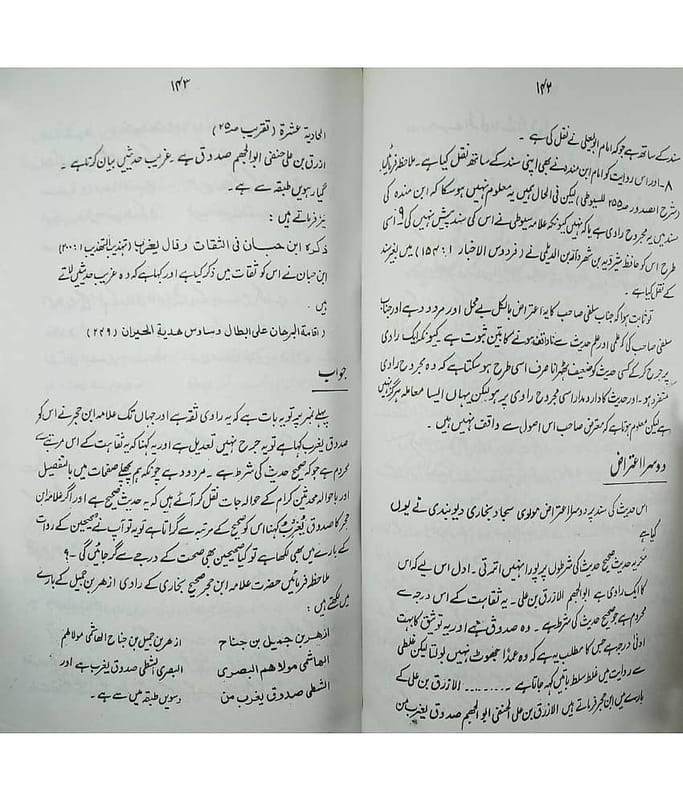 ۱۴۲
سند کے ساتھ ہے جو کہ امام ابو یعلیٰ نے نقل کی ہے ۔
۸ ۔ اور اس روایت کو امام ابن مندہ نے بھی اپنی سند کے ساتھ نقل کیا ہے ۔ ملاحظہ فرمائیں
(شرح الصدور صـ۲۵۵ للسیوطی) لیکن فی الحال ہمیں یہ معلوم نہیں ہوسکا کہ ابن مندہ کی
سند میں یہ مجروح راوی ہے یا کہ نہیں کیونکہ علامہ سیوطی نے اس کی سند پیش نہیں کی ۹ ۔ اسی
طرح اس کو حافظ شیرویہ بن شہردار بن الدیلمی نے (فردوس الاخبار ۱ : ۱۵۴) میں بغیر سند
کے نقل کیا ہے ۔
تو ثابت ہوا کہ جناب سلفی صاحب کا یہ اعتراض بالکل بے محل اور مردود ہے اور جناب
سلفی صاحب کی کم علمی اور علم حدیث سے ناواقف ہونے کا بین ثبوت ہے ۔ کیونکہ ایک راوی
پر جرح کر کے کسی حدیث کو ضعیف ٹھہرانا صرف اسی طرح ہوسکتا ہے کہ وہ مجروح راوی
متفرد ہو ۔ اور حدیث کا دارومدار اسی مجروح راوی پر ہو لیکن یہاں ایسا معاملہ ہرگز نہیں
ہے لیکن معلوم ہوتا ہے کہ معترض صاحب اس اصول سے واقف نہیں ہیں ۔
دوسرا اعتراض
اس حدیث کی سند پر دوسرا اعتراض مولوی سجاد بخاری دیوبندی نے یوں
کیا ہے
مگر یہ حدیث صحیح حدیث کی شرطوں پر پورا نہیں اترتی ۔ اول اس لیے کہ اس
کا ایک راوی ہے ابو الجہم الازرق بن علی ۔ یہ ثقاہت کے اس درجہ سے
محروم ہے جو صحیح حدیث کی شرط ہے ۔ وہ صدوق ہے اور یہ توثیق کا بہت
ادنیٰ درجہ ہے جس کا مطلب یہ ہے کہ وہ عمداً جھوٹ نہیں بولتا لیکن غلطی
سے روایت میں غلط سلط باتیں کہہ جاتا ہے ۔ ........ الازرق بن علی کے
بارے میں ابن حجر فرماتے ہیں الازرق بن علی الحنفی ابو الجہم صدوق یغرب من
۱۴۳
الحادیۃ عشرۃ ( تقریب صـ۲۵)
ازرق بن علی حنفی ابو الجہم صدوق ہے ۔ غریب حدیثیں بیان کرتا ہے ۔
گیارہویں طبقہ سے ہے ۔
نیز فرماتے ہیں :
ذکرہ ابن حبان فی الثقات وقال یغرب (تہذیب التہذیب ۱ : ۲۰۰)
ابن حبان نے اس کو ثقات میں ذکر کیا ہے اور کہا ہے کہ وہ غریب حدیثیں لاتے
ہیں ۔
(اقامۃ البرھان علی ابطال وساوس ھدیۃ الحیران (۲۴۹)
جواب
پہلے نمبر پر تو یہ بات ہے کہ یہ راوی ثقہ ہے اور جہاں تک علامہ ابن حجر نے اس کو
صدوق یغرب کہا ہے تو یہ جرح نہیں تعدیل ہے اور یہ کہنا کہ یہ ثقاہت کے اس مرتبے سے
محروم ہے جو کہ صحیح حدیث کی شرط ہے ۔ مردود ہے چونکہ ہم پچھلے صفحات میں بالتفصیل
اور باحوالہ محدثین کرام کے حوالہ جات نقل کر آئے ہیں کہ یہ حدیث صحیح ہے اور اگر علامہ ابن
حجر کا صدوق یغرب کہنا اس کو صحیح کے مرتبہ سے گراتا ہے تو یہ تو آپ نے صحیحین کے روات
کے بارے میں بھی لکھا ہے تو کیا صحیحین بھی صحت کے درجے سے گر جائیں گی ۔ ؟
ملاحظہ فرمائیں حضرت علامہ ابن حجر صحیح بخاری کے راوی ازھر بن جمیل کے بارے
میں لکھتے ہیں :
ازھر بن جمیل بن جناح ازھر بن جمیل بن جناح الھاشمی مولاھم
الھاشمی مولاھم البصری البصری الشطی صدوق یغرب ہے اور
الشطی صدوق یغرب من دسویں طبقہ میں سے ہے ۔